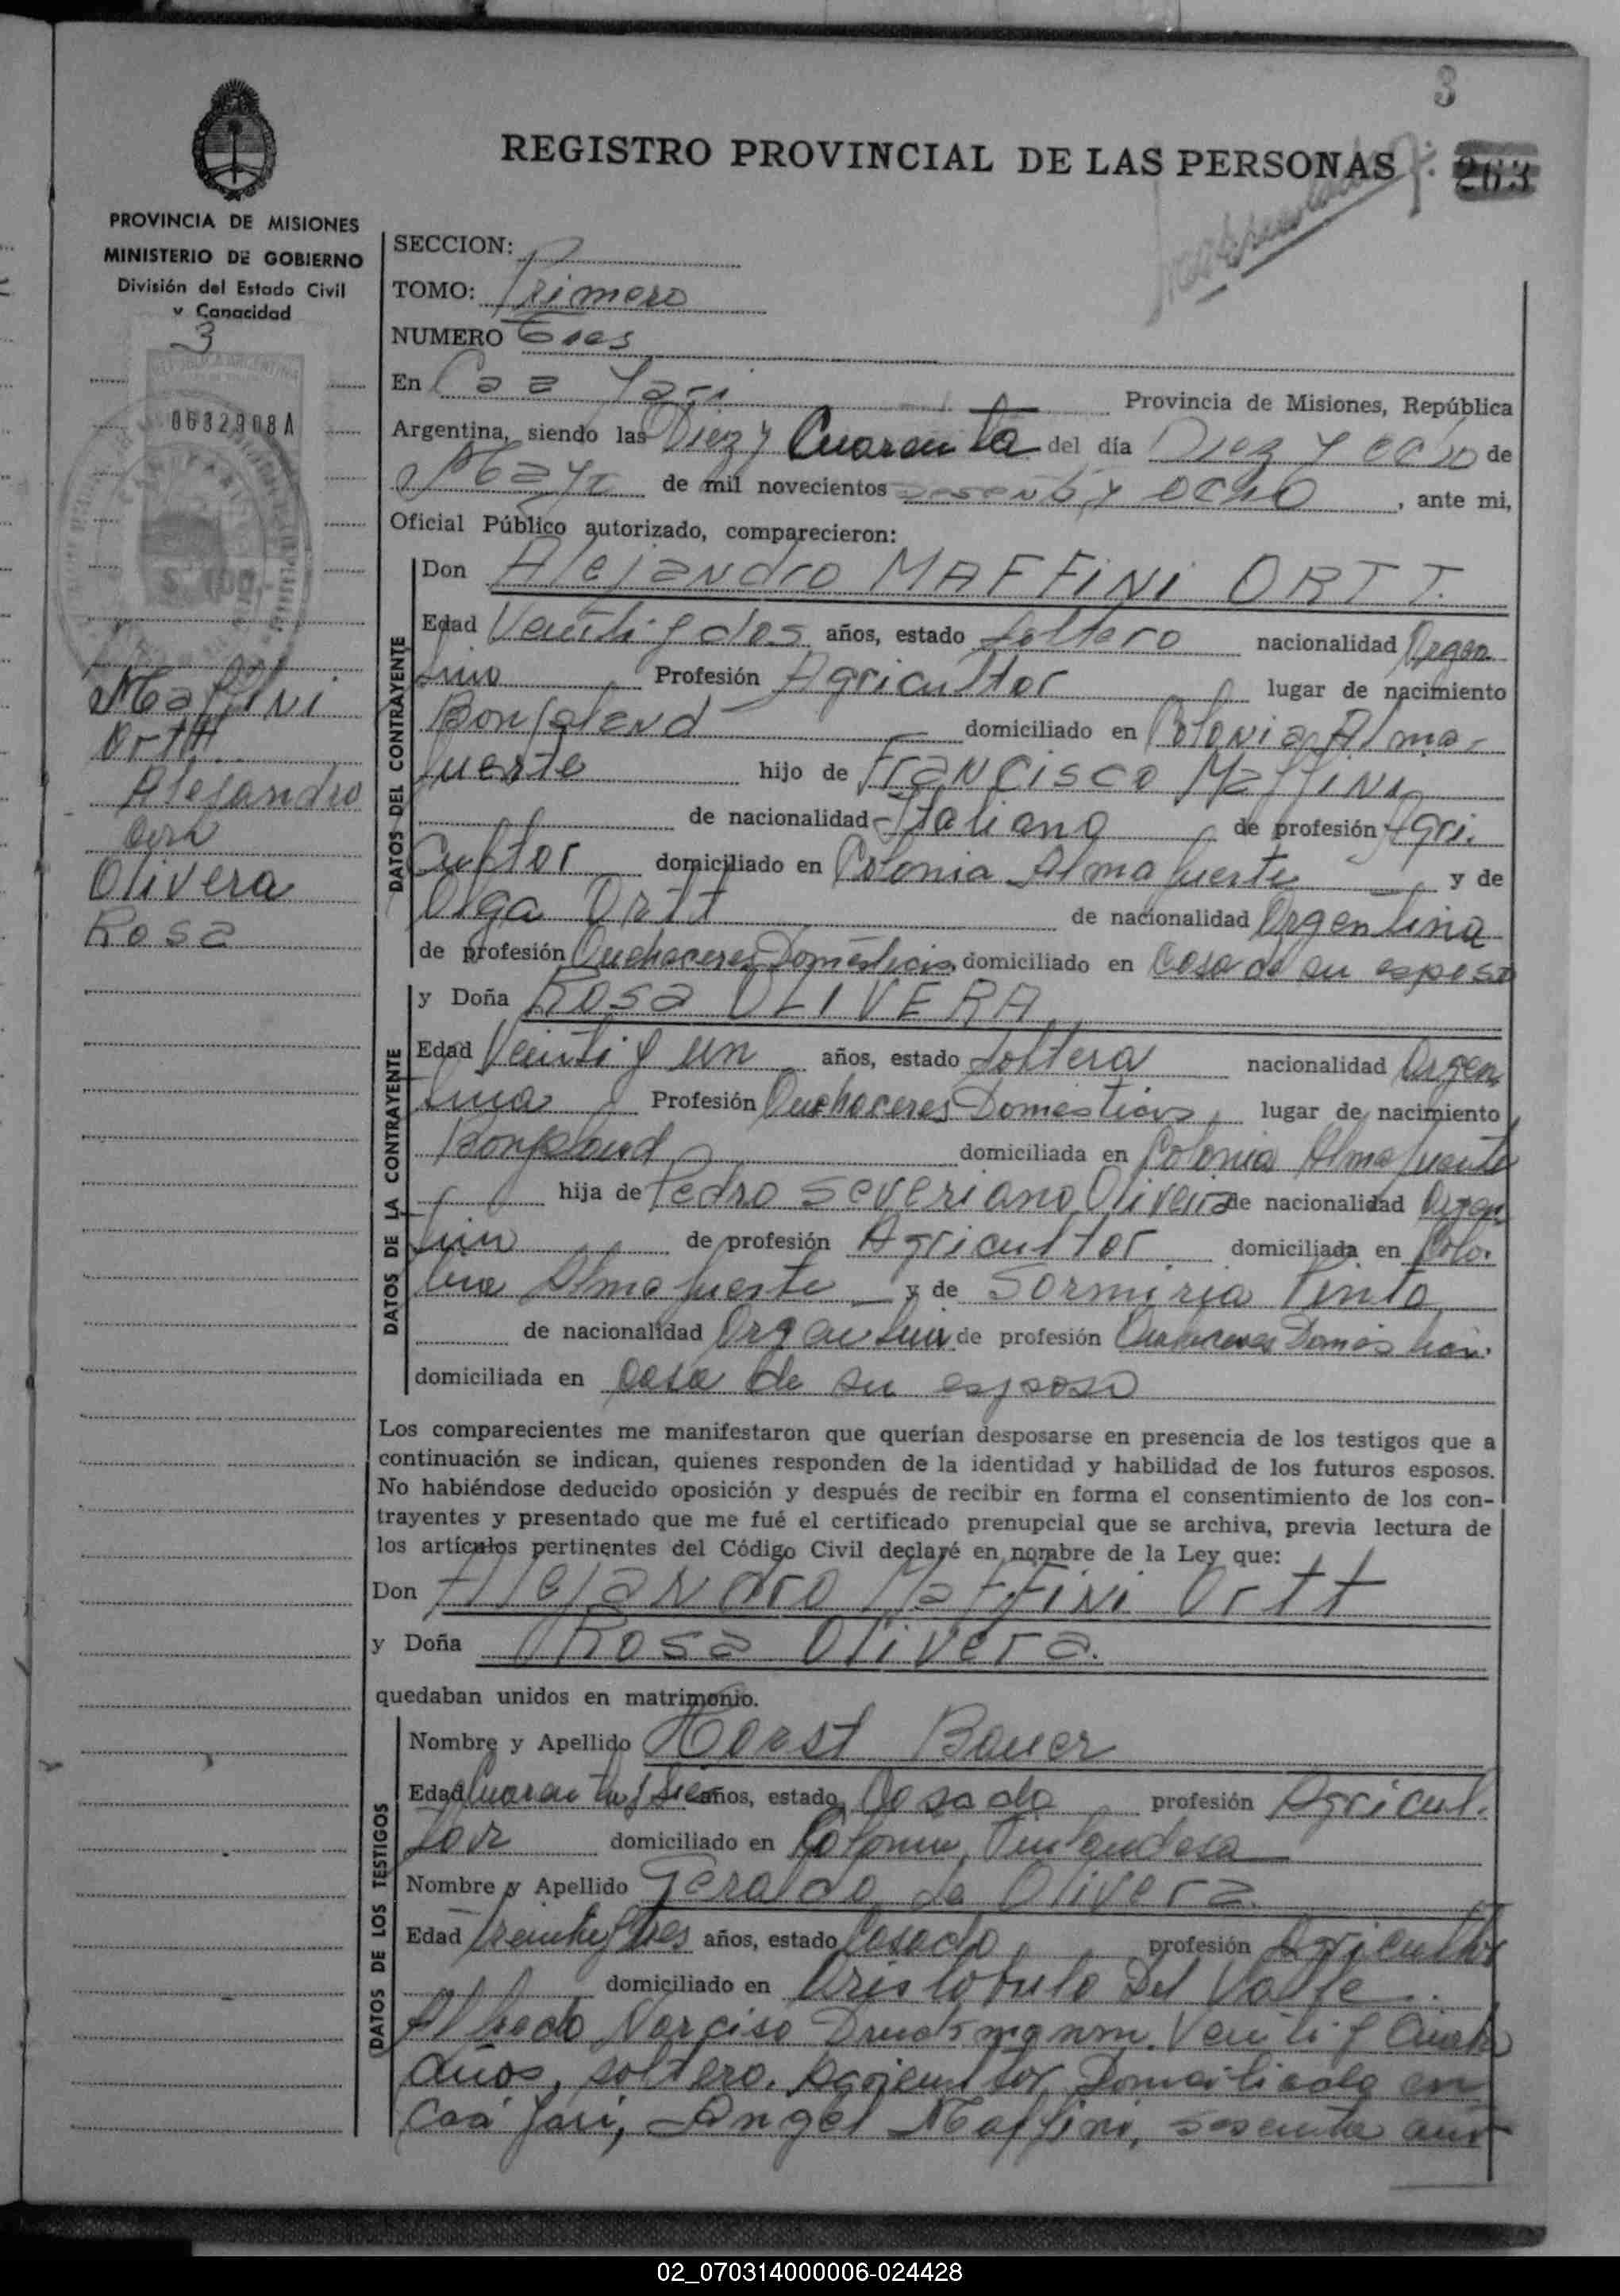 3
REGISTRO PROVINCIAL DE LAS PERSONAS
263
PROVINCIA DE MISIONES
MINISTERIO DE GOBIERNO
División del Estado Civil
y Capacidad
3
REPUBLICA ARGENTINA
0632908A
$ 100.-
Maffini
Ortt
Alejandro
con
Olivera
Rosa
SECCION:
TOMO: Primero
NUMERO Tres
En Caa Yari Provincia de Misiones, República
Argentina, siendo las Diez y Cuarenta del día Diez y ocho de
Mayo de mil novecientos sesenta y ocho, ante mi,
Oficial Público autorizado, comparecieron:
DATOS DEL CONTRAYENTE
Don Alejandro MAFFINI ORTT.
Edad Veinti y dos años, estado soltero nacionalidad Argen
tino Profesión Agricultor lugar de nacimiento
Bonpland domiciliado en Colonia Alma-
fuerte hijo de Francisco Maffini
de nacionalidad Italiana de profesión Agri-
cultor domiciliado en Colonia Almafuerte y de
Olga Ortt de nacionalidad Argentina
de profesión Quehaceres Domésticos domiciliado en Casa de su esposo
DATOS DE LA CONTRAYENTE
y Doña Rosa OLIVERA
Edad Veinti y un años, estado soltera nacionalidad Argen
tina Profesión Quehaceres Domesticos, lugar de nacimiento
Bonpland domiciliada en Colonia Almafuerte
hija de Pedro Severiano Olivera de nacionalidad Argen
tino de profesión Agricultor domiciliada en Colo-
nia Almafuerte y de Sormiria Pinto
de nacionalidad Argentina de profesión Quehaceres Domésticos
domiciliada en casa de su esposo
Los comparecientes me manifestaron que querían desposarse en presencia de los testigos que a
continuación se indican, quienes responden de la identidad y habilidad de los futuros esposos.
No habiéndose deducido oposición y después de recibir en forma el consentimiento de los con-
trayentes y presentado que me fué el certificado prenupcial que se archiva, previa lectura de
los artículos pertinentes del Código Civil declaré en nombre de la Ley que:
Don Alejandro Maffini Ortt
y Doña Rosa Olivera.
quedaban unidos en matrimonio.
DATOS DE LOS TESTIGOS
Nombre y Apellido Horst Bauer
Edad años, estado Casado profesión Agricul-
tor domiciliado en Colonia
Nombre y Apellido Geraldo de Olivera.
Edad treinta y tres años, estado Casado profesión Agricultor
domiciliado en Aristobulo Del Valle.
Alfredo Narciso Veinti y Cuatro
años, soltero, Agricultor, Domiciliado en
Caá Yari, Angel Maffini, sesenta años
02_070314000006-024428